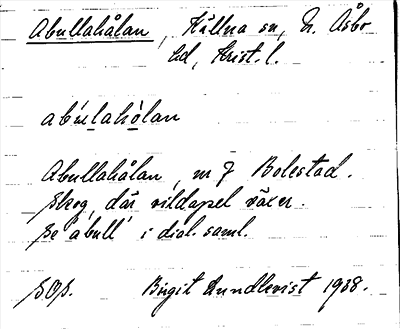 Abullahålan, Källna sn, N. Åsbo
hd, Krist. l.
abúllahòlan
Abullahålan, m f Bolestad.
Skog, där vildapel växer.
se 'abull' i dial. saml.
SOS. Birgit Lundkvist 1938.